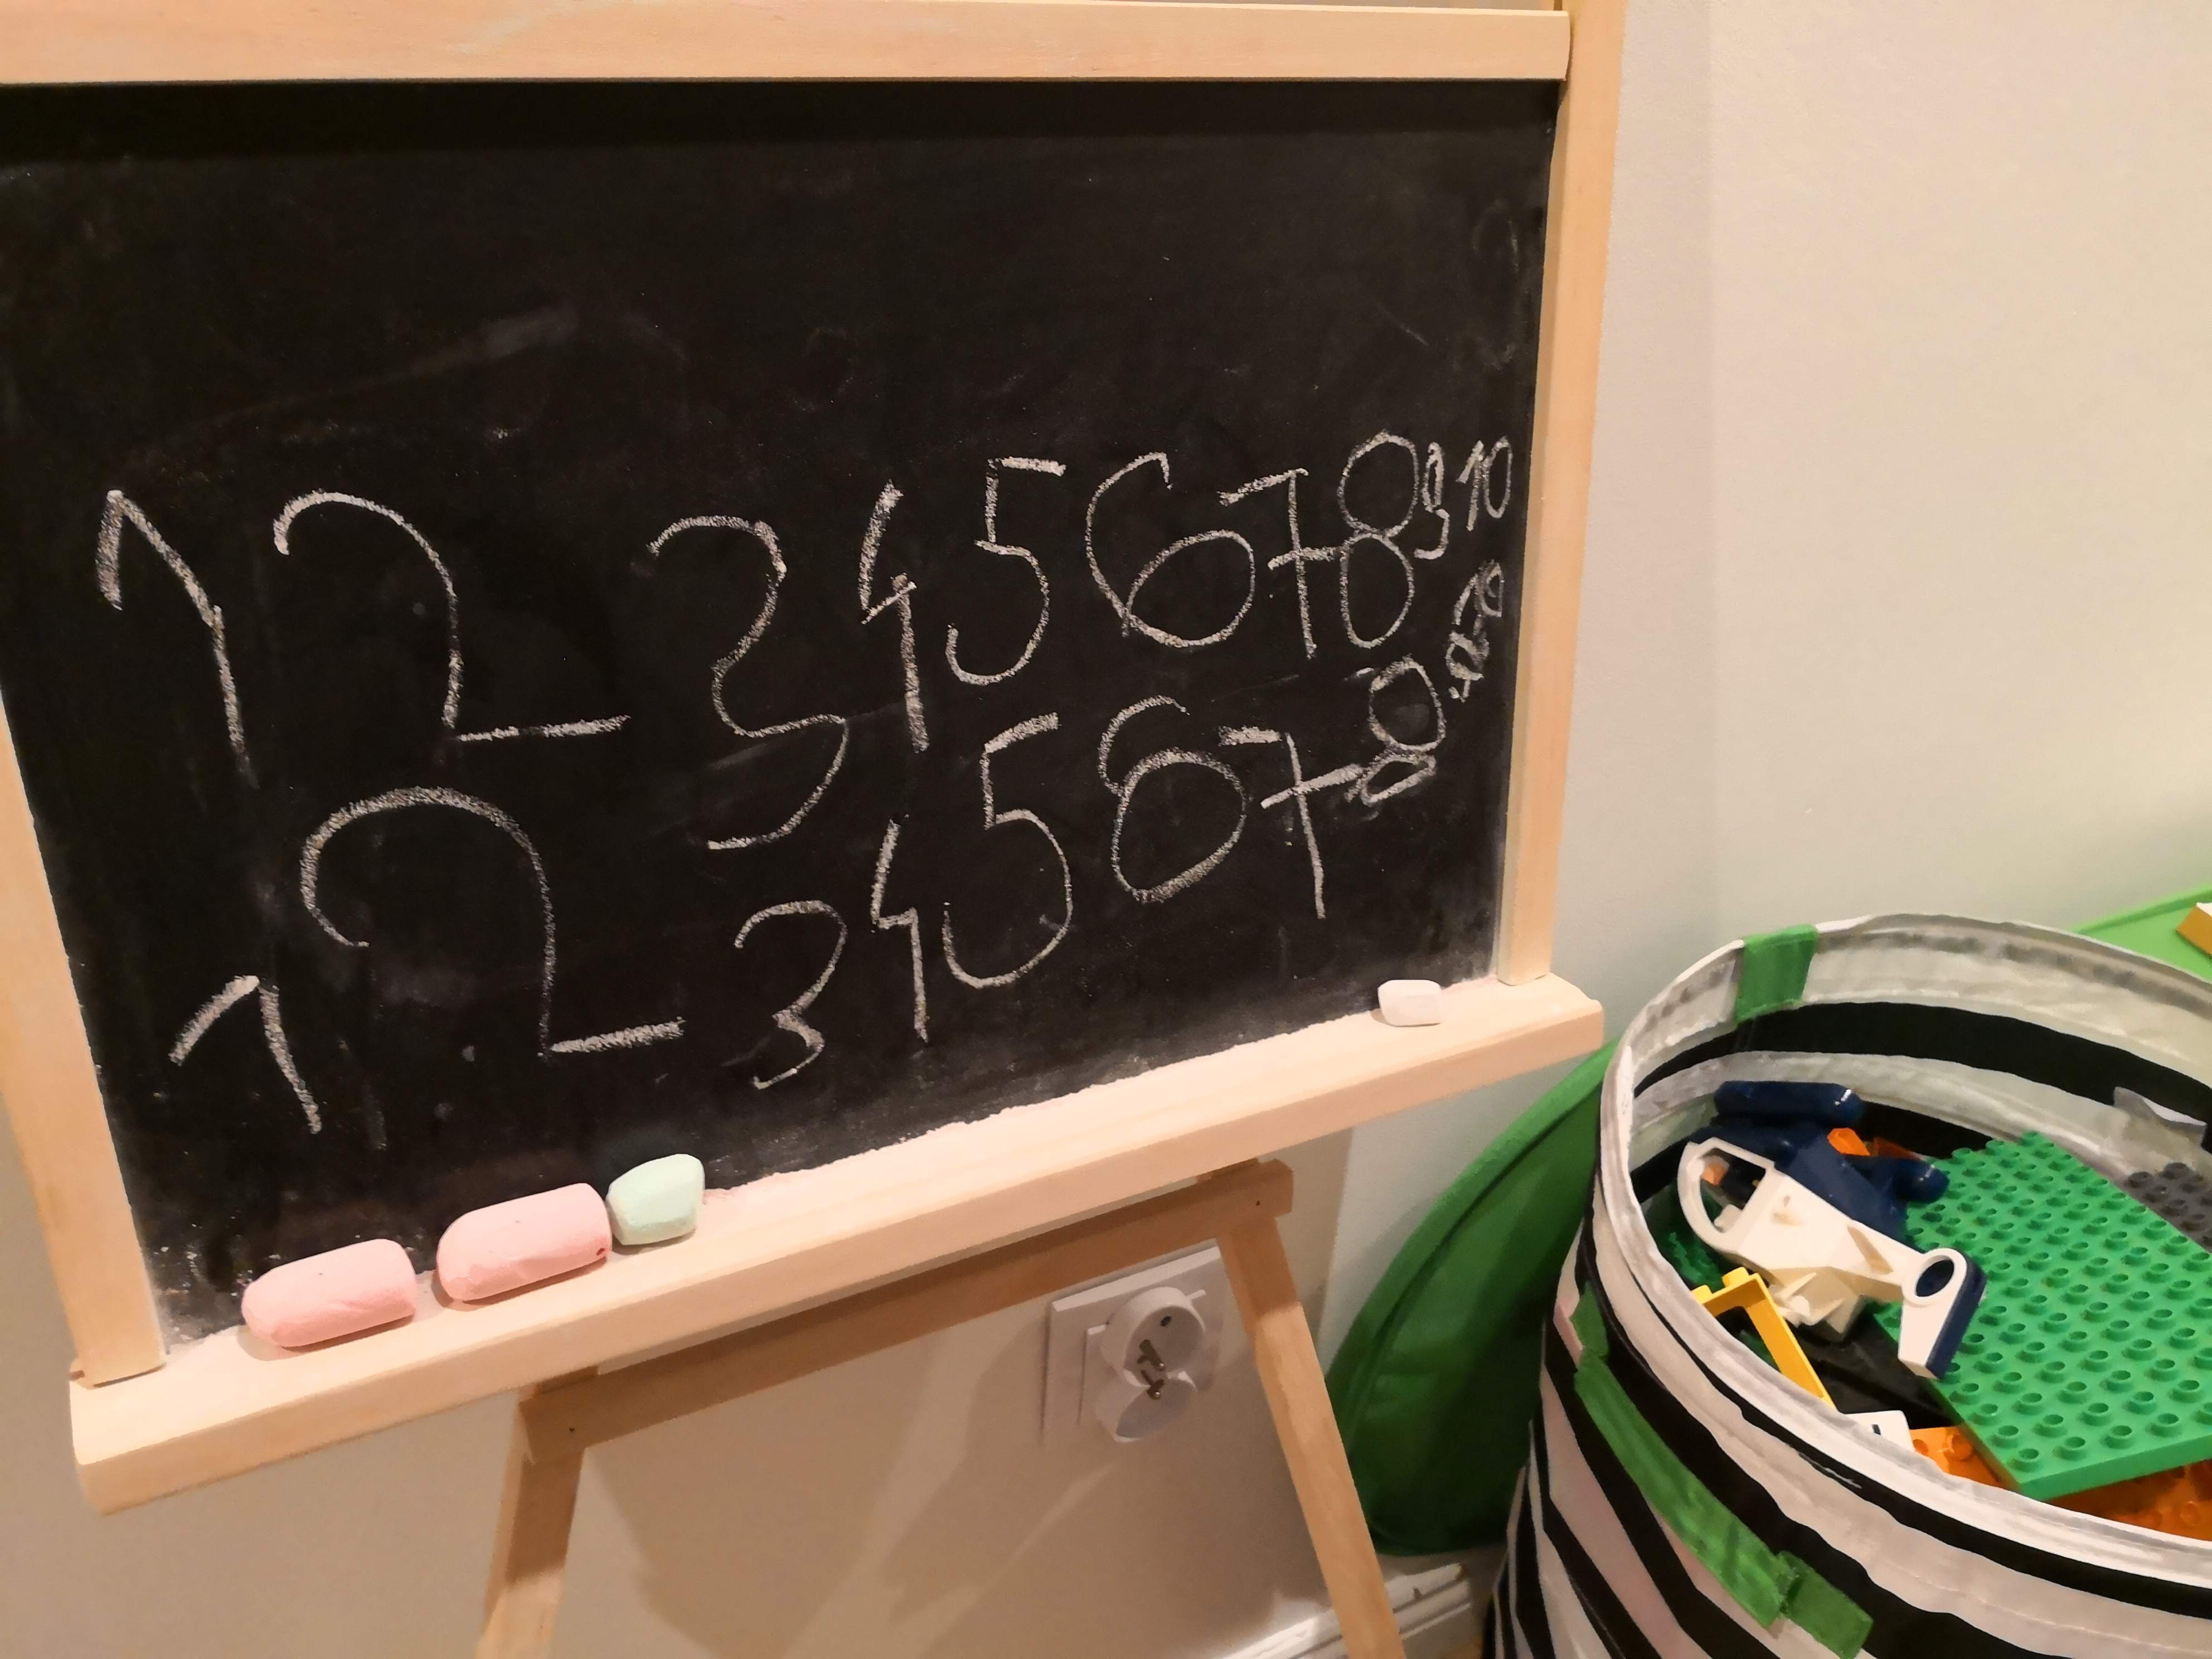 1 2 3 4 5 6 7 8 9 10
1 2 3 4 5 6 7 8